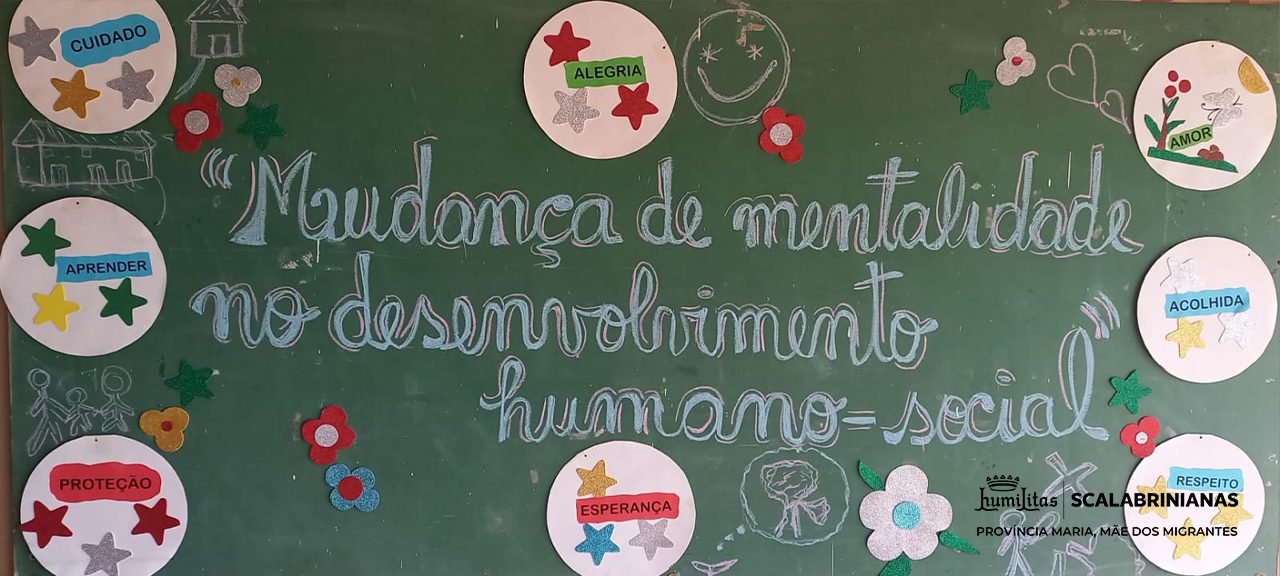 CUIDADO
ALEGRIA
AMOR
“Mudança de mentalidade
APRENDER
ACOLHIDA
no desenvolvimento
humano=social”
PROTEÇÃO
ESPERANÇA
RESPEITO
humilitas SCALABRINIANAS
PROVÍNCIA MARIA, MÃE DOS MIGRANTES